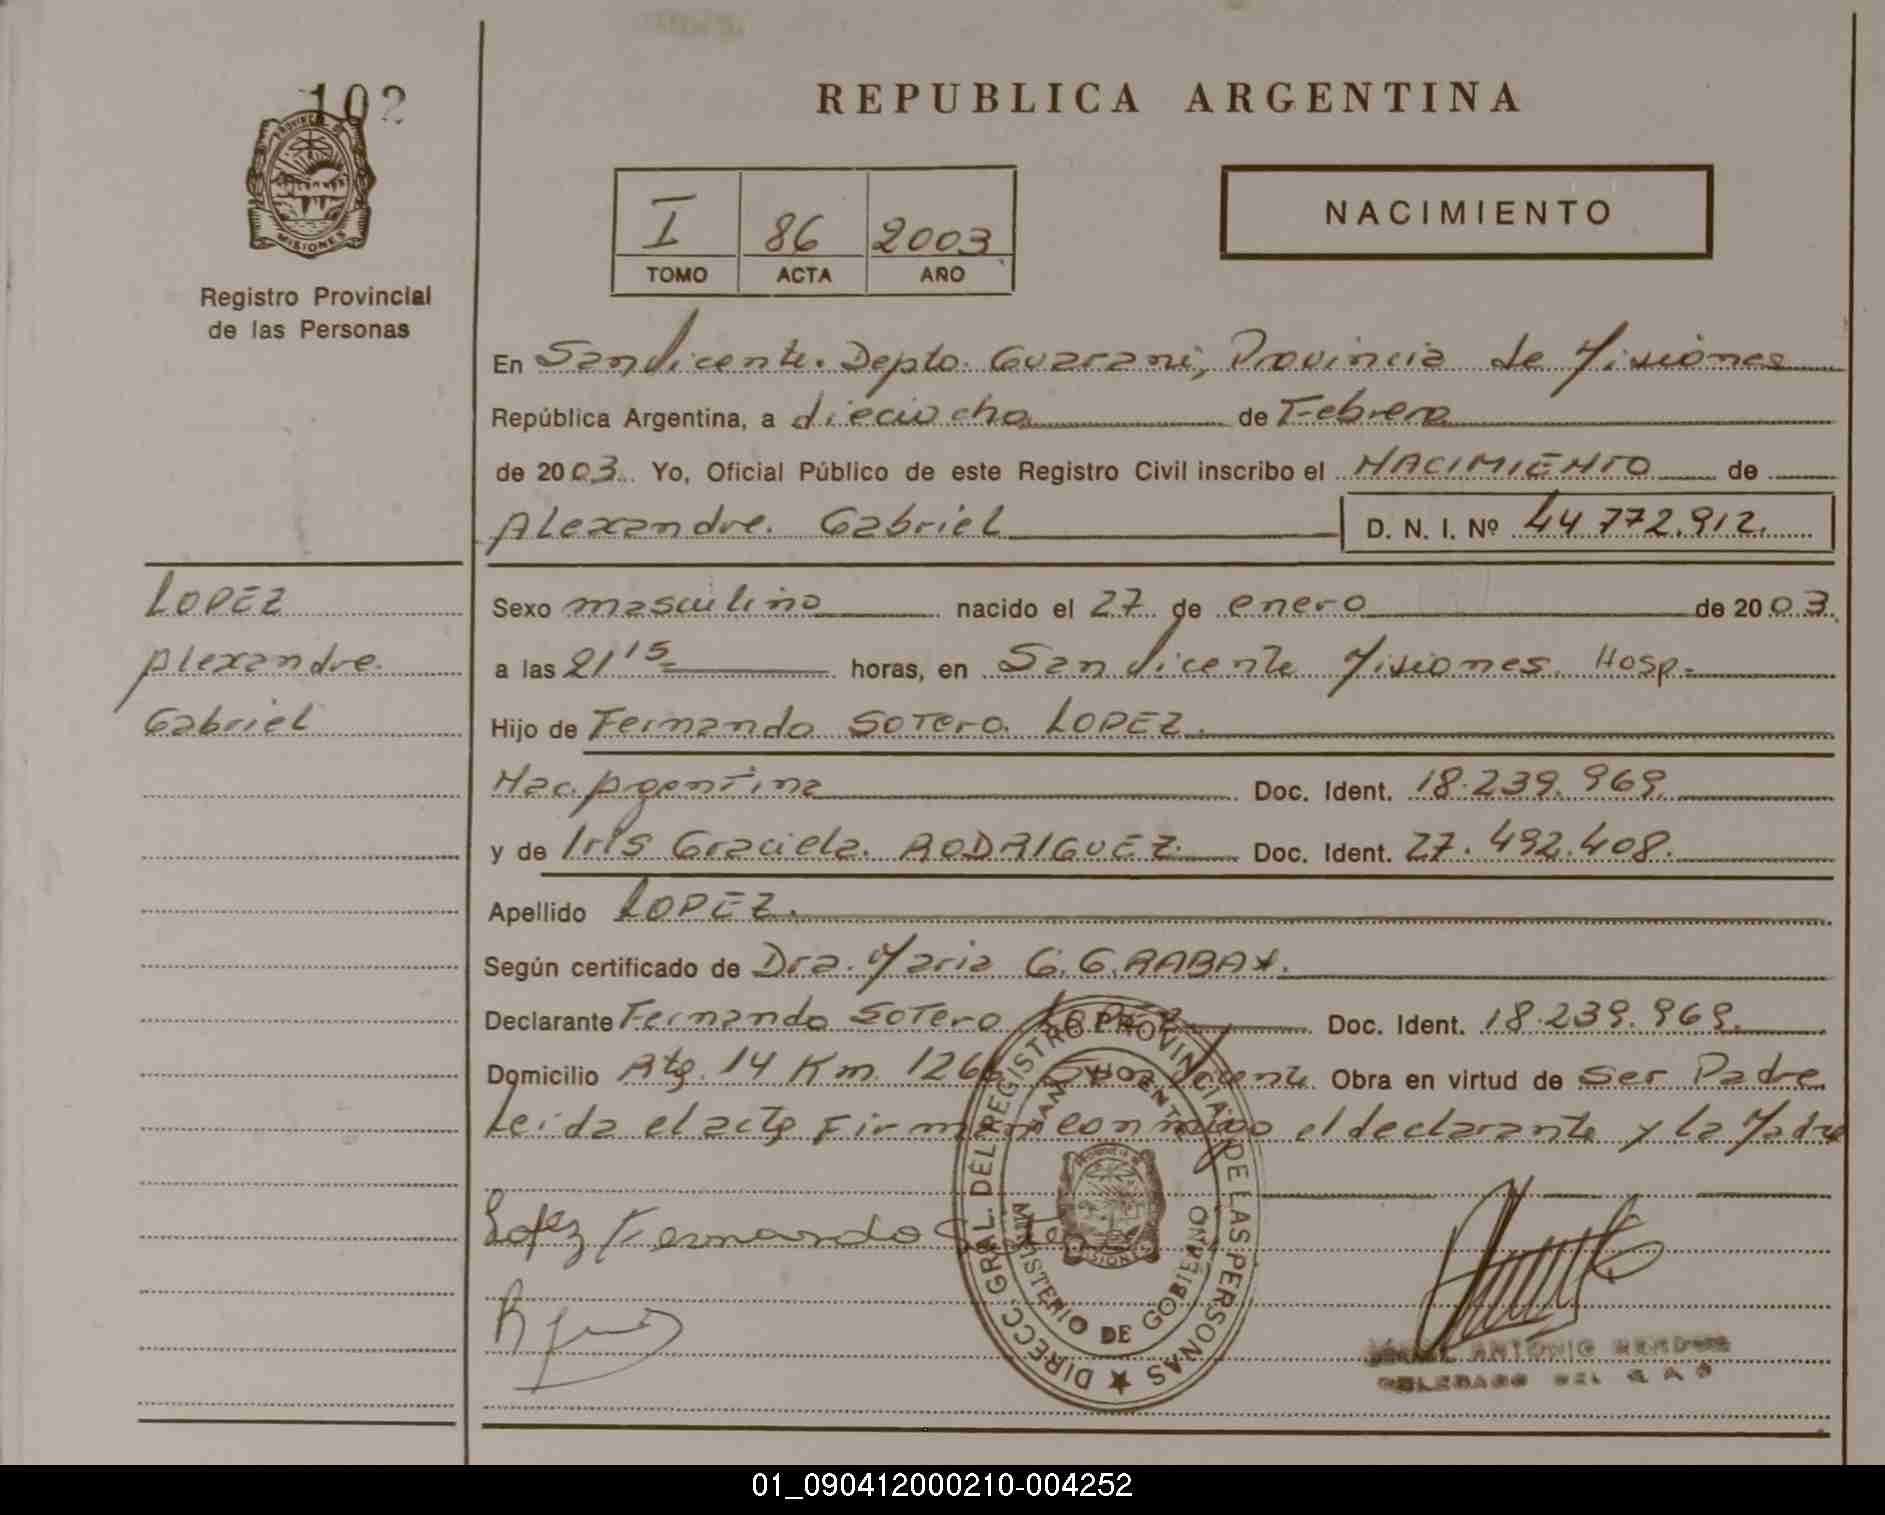 102
PROVINCIA DE
MISIONES
Registro Provincial
de las Personas
REPUBLICA ARGENTINA
I 86 2003
TOMO ACTA AÑO
NACIMIENTO
En San Vicente. Depto. Guarani, Provincia de Misiones
República Argentina, a dieciocho de Febrero
de 2003. Yo, Oficial Público de este Registro Civil inscribo el NACIMIENTO de
Alexandre. Gabriel D. N. I. Nº 44 772.912.
LOPEZ
Alexandre.
Gabriel
Sexo masculino nacido el 27 de enero de 2003.
a las 21 15 horas, en San Vicente Misiones. Hosp.
Hijo de Fernando SOTERO LOPEZ.
Nac. Argentina Doc. Ident. 18.239.969.
y de Iris Graciela. RODRIGUEZ. Doc. Ident. 27.492.408.
Apellido LOPEZ.
Según certificado de Dra. Maria G. G.
Declarante Fernando SOTERO LOPEZ Doc. Ident. 18.239.969.
Domicilio Rta. 14 Km. 1266 San Vicente. Obra en virtud de Ser Padre
Leida el acta Firman conmigo el declarante y la Madre
Lopez Fernando Sotero
DIRECC. GRAL. DEL REGISTRO PROVINCIAL DE LAS PERSONAS
SAN VICENTE
MINISTERIO DE GOBIERNO
ANTONIO
DELEGADO DEL
01_090412000210-004252